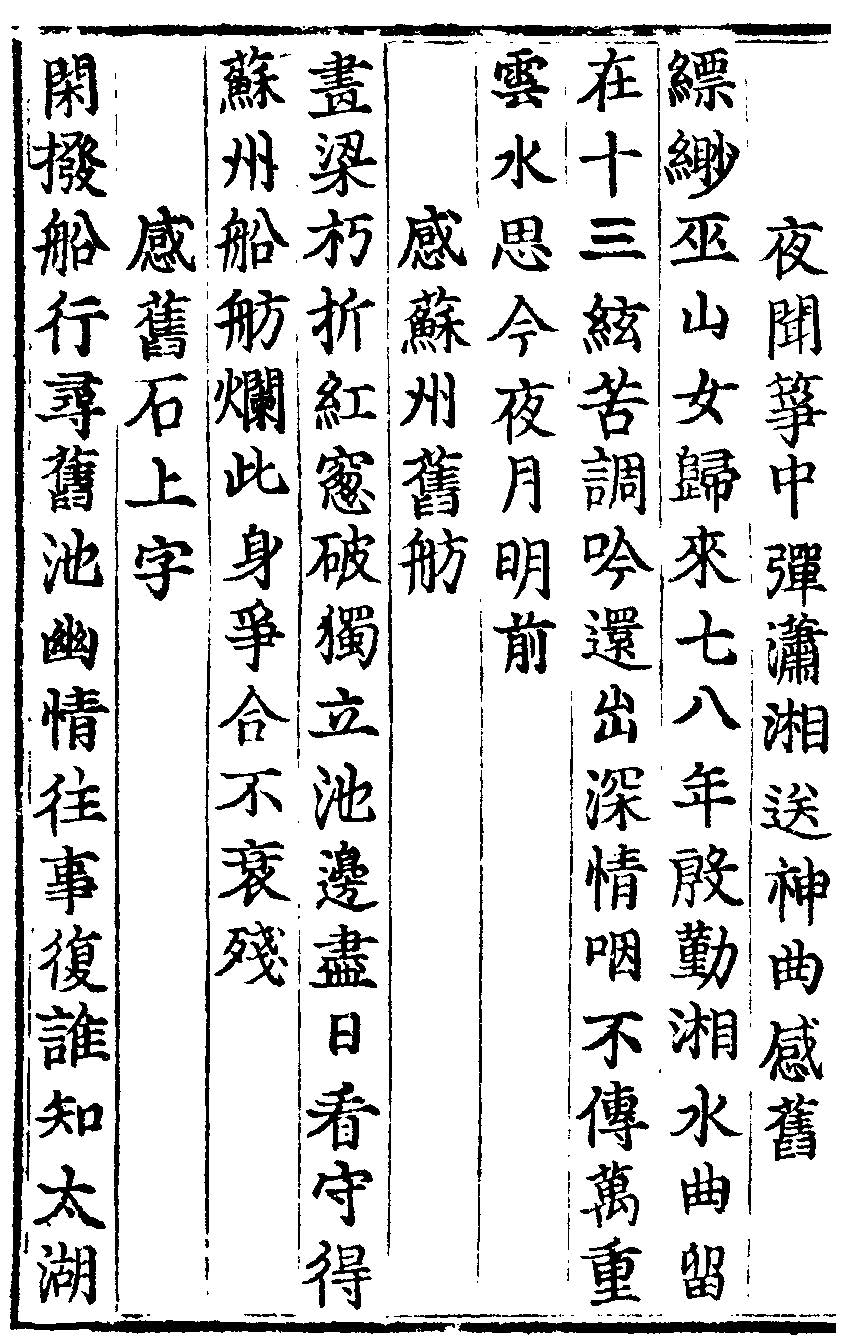 夜聞箏中彈瀟湘送神曲感舊
縹緲巫山女歸來七八年殷勤湘水曲留
在十三絃苦調吟還出深情咽不傳萬重
雲水思今夜月明前
感蘇州舊舫
畫梁朽折紅窻破獨立池邊盡日看守得
蘇州船舫爛此身爭合不衰殘
感舊石上字
閑撥船行尋舊池幽情往事復誰知太湖